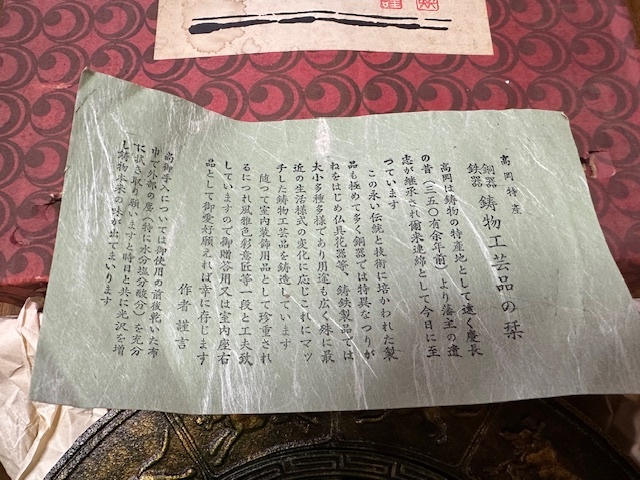 高岡特産
銅器
鉄器
鋳物工芸品の栞
高岡は鋳物の特産地として遠く慶長
の昔(三五〇有余年前)より藩主の遺
志が継承され爾来連綿として今日に至
つています
この永い伝統と技術に培かわれた製
品も極めて多く銅器では特異なつりが
ねをはじめ仏具花器等、鋳鉄製品では
大小多種多様であり用途も広く殊に最
近の生活様式の変化に応じこれにマツ
チした鋳物工芸品を鋳造しています
随つて室内装飾用品として珍重され
るにつれ風雅色彩意匠等一段と工夫致
していますので御贈答用又は室内座右
品として御愛好願えれば幸に存じます
作者 謹言
尚御手入については御使用の前後乾いた布
巾で外部の塵(特に水分塩分酸分)を充分
に拭き取り願いますと時日と共に光沢を増
し鋳物本来の味が出てまいります